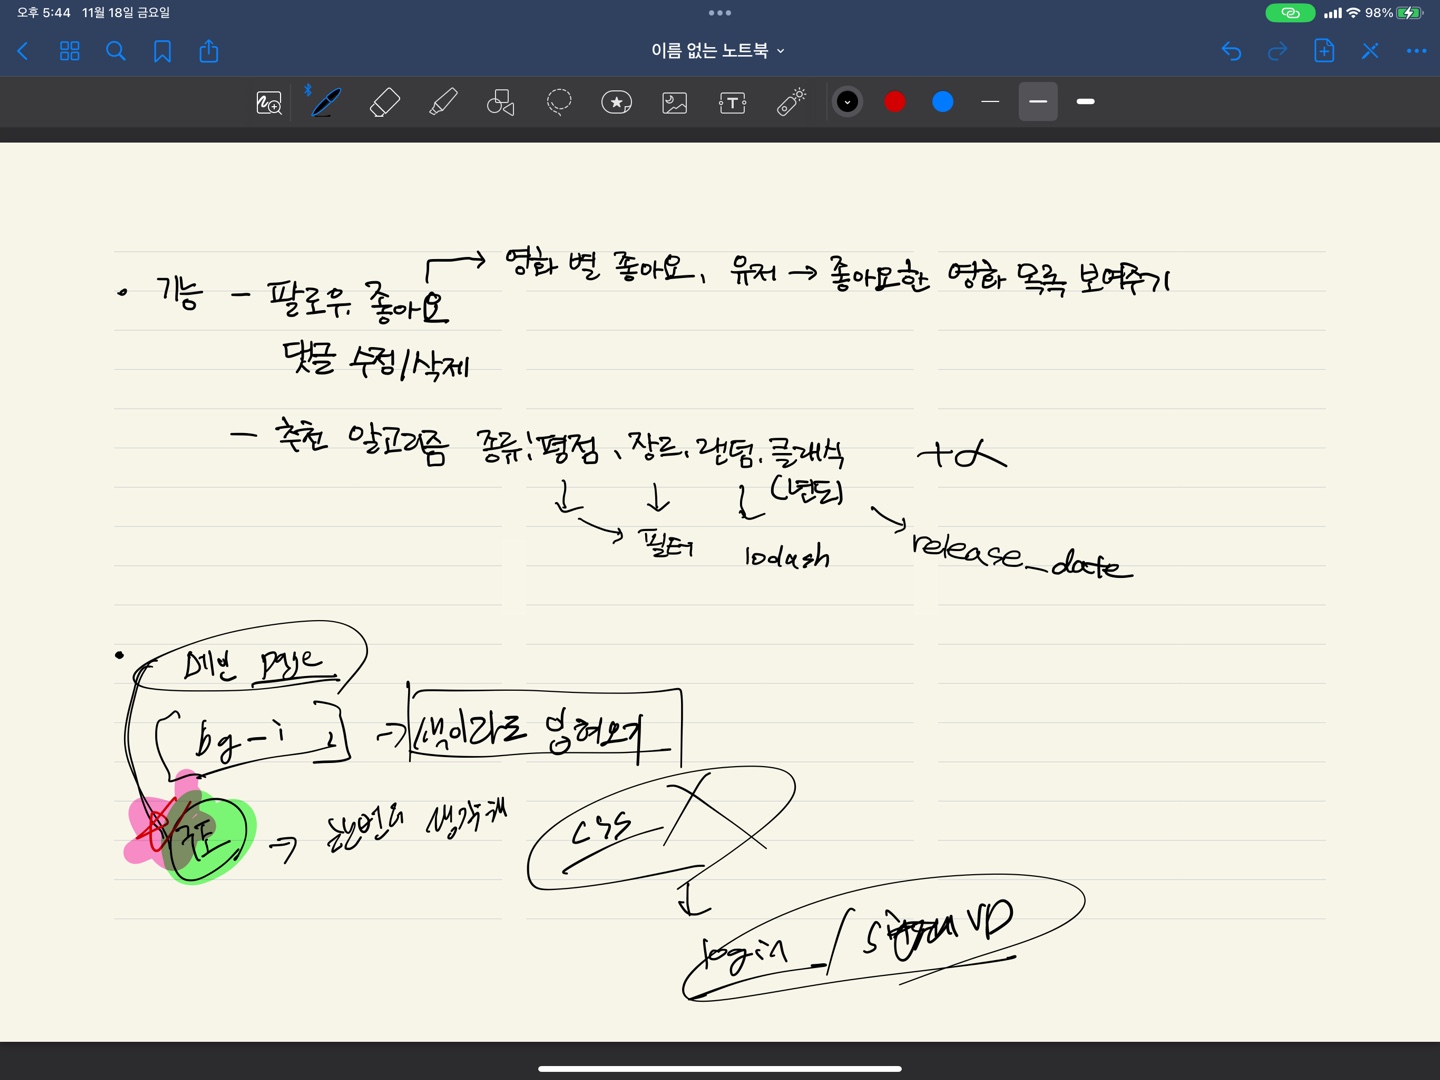 오후 5:44 11월 18일 금요일
98%
이름 없는 노트북
T
→ 영화 별 좋아요, 유저 → 좋아요한 영화 목록 보여주기
• 기능 - 팔로우, 좋아요
댓글 수정/삭제
- 추천 알고리즘 종류: 평점, 장르, 랜덤, 클래식 +α
(년도)
필터 lodash release_date
• 메인 page
[bg-i] → 색이라도 입혀오기
구도 → 한번더 생각해 css X
login / signup